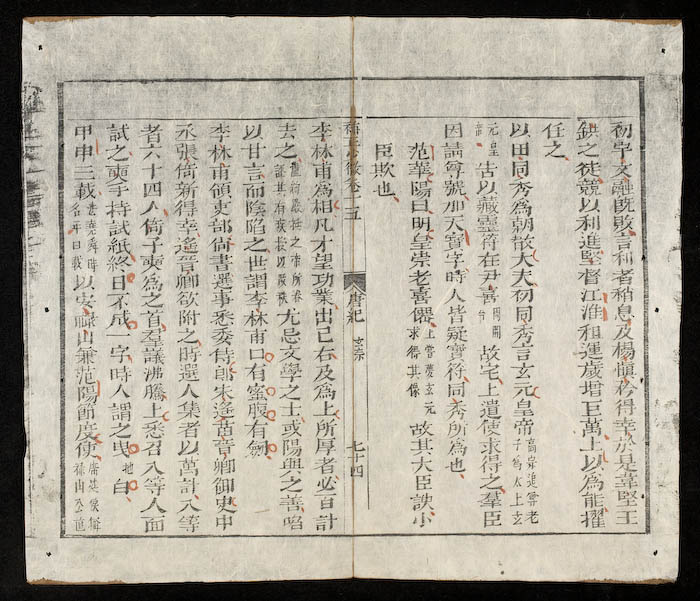 初宇文融既敗言利者稍息及楊慎矜得幸於是韋堅王
鉷之徒競以利進堅督江淮租運歲增巨萬上以為能擢
任之
以田同秀為朝散大夫初同秀言玄元皇帝高宗追尊老子為太上玄
元皇帝告以藏靈符在尹喜周關故宅上遣使求得之羣臣
因請尊號加天寶字時人皆疑寶符同秀所為也
范華陽曰明皇崇老喜僊上嘗夢玄元求得其像故其大臣諛小
臣欺也
卷十五 唐紀 玄宗 七十四
李林甫為相凡才望功業出己右及為上所厚者必百計
去之尤忌文學之士或陽與之善啗
以甘言而陰陷之世謂李林甫口有蜜腹有劍
李林甫領吏部尚書選事悉委侍郎朱遙苗晉卿御史中
丞張倚新得幸遙晉卿欲附之時選人集者以萬計入等
者六十四人倚子奭為之首羣議沸騰上悉召入等人面
試之奭手持試紙終日不成一字時人謂之曳地白
甲申三載昔堯舜時名年曰載以安祿山兼范陽節度使